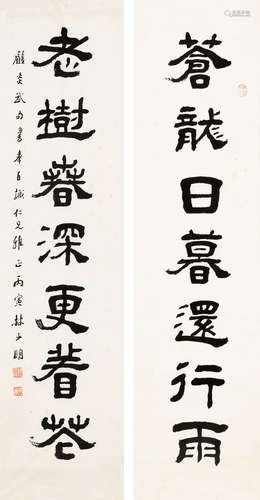 蒼龍日暮還行雨
老樹春深更著花
顧炎武句書奉自誠仁兄雅正丙寅林少明